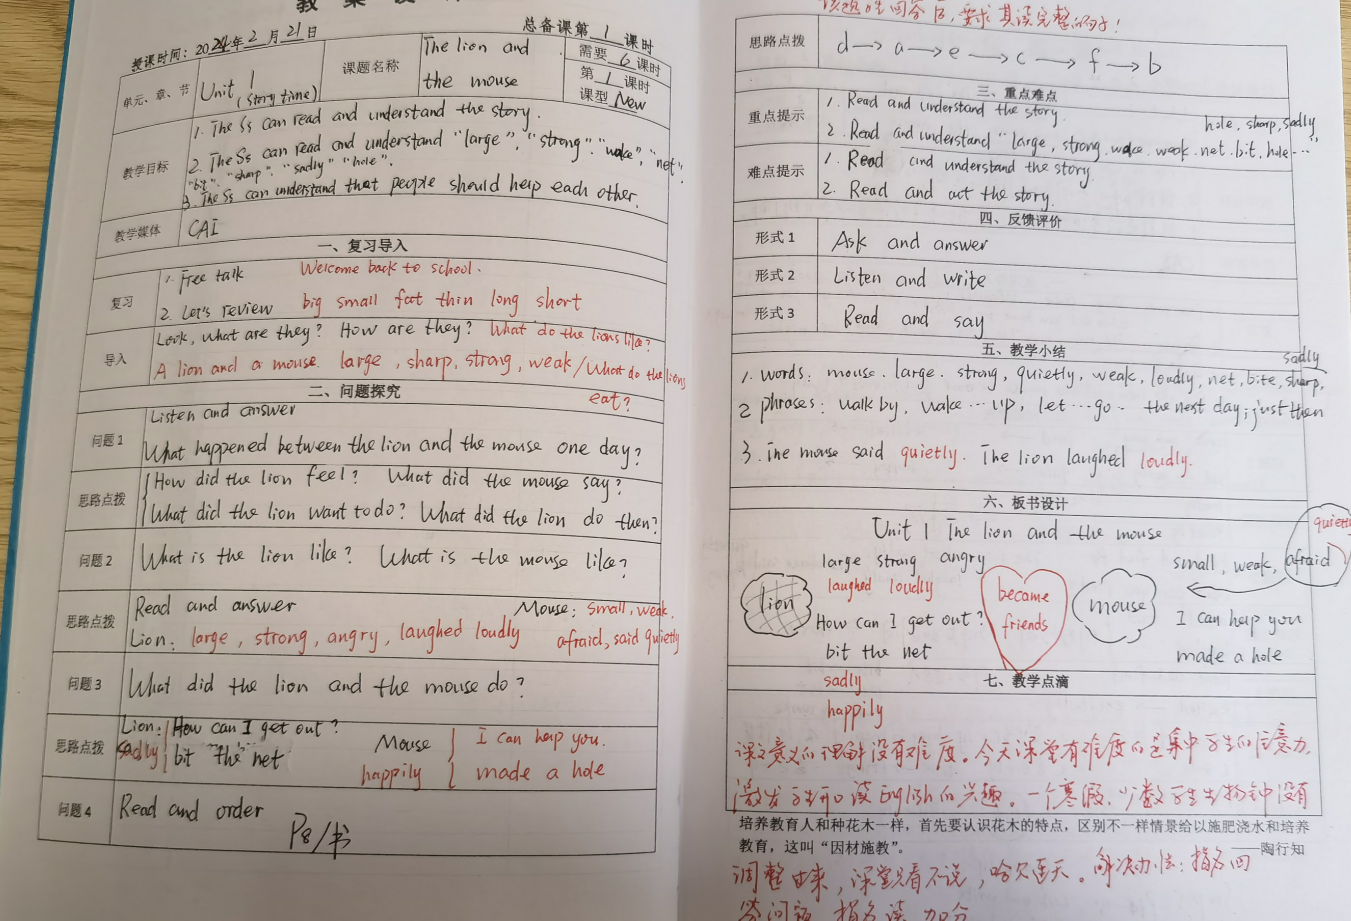 教 案
授课时间：2024年2月21日
总备课第 1 课时
单元、章、节
Unit 1
(story time)
课题名称
The lion and
the mouse
需要 6 课时
第 1 课时
课型 New
教学目标
1. The Ss can read and understand the story.
2. The Ss can read and understand "large", "strong". "wake", "net".
"bit". "sharp". "sadly" "hole".
3. The Ss can understand that people should help each other.
教学媒体
CAI
一、复习导入
复习
1. Free talk Welcome back to school.
2. Let's review big small fat thin long short
导入
Look, what are they? How are they? What do the lions like?
A lion and a mouse. large, sharp, strong, weak/What do the lions
eat?
二、问题探究
问题 1
Listen and answer
What happened between the lion and the mouse one day?
思路点拨
How did the lion feel? What did the mouse say?
What did the lion want to do? What did the lion do then?
问题 2
What is the lion like? What is the mouse like?
思路点拨
Read and answer Mouse: small, weak.
Lion: large, strong, angry, laughed loudly afraid, said quietly
问题 3
What did the lion and the mouse do?
思路点拨
Lion: How can I get out? Mouse I can help you.
sadly bit the net happily made a hole
问题 4
Read and order
P8/书
回答后，要求其读完整的句子！
思路点拨
d→a→e→c→f→b
三、重点难点
重点提示
1. Read and understand the story.
hole, sharp, sadly
2. Read and understand "large, strong, wake. weak. net. bit, hole…"
难点提示
1. Read and understand the story.
2. Read and act the story.
四、反馈评价
形式 1
Ask and answer
形式 2
Listen and write
形式 3
Read and say
五、教学小结
sadly
1. words: mouse. large. strong, quietly, weak, loudly, net, bite, sharp,
2 phrases: walk by, wake…up, let…go. the next day; just then
3. The mouse said quietly. The lion laughed loudly.
六、板书设计
Unit 1 The lion and the mouse
large strong angry
laughed loudly
lion
How can I get out?
bit the net
sadly
happily
became
friends
mouse
quietly
small, weak, afraid
I can help you
made a hole
七、教学点滴
课文意义的理解没有难度。今天课堂有难度的是集中学生的注意力，
激发学生开口读English的兴趣。一个寒假，少数学生生物钟没有
培养教育人和种花木一样，首先要认识花木的特点，区别不一样情景给以施肥浇水和培养
教育，这叫“因材施教”。
——陶行知
调整出来，课堂只看不说，哈欠连天。解决办法：指名回
答问题，指名读，加分